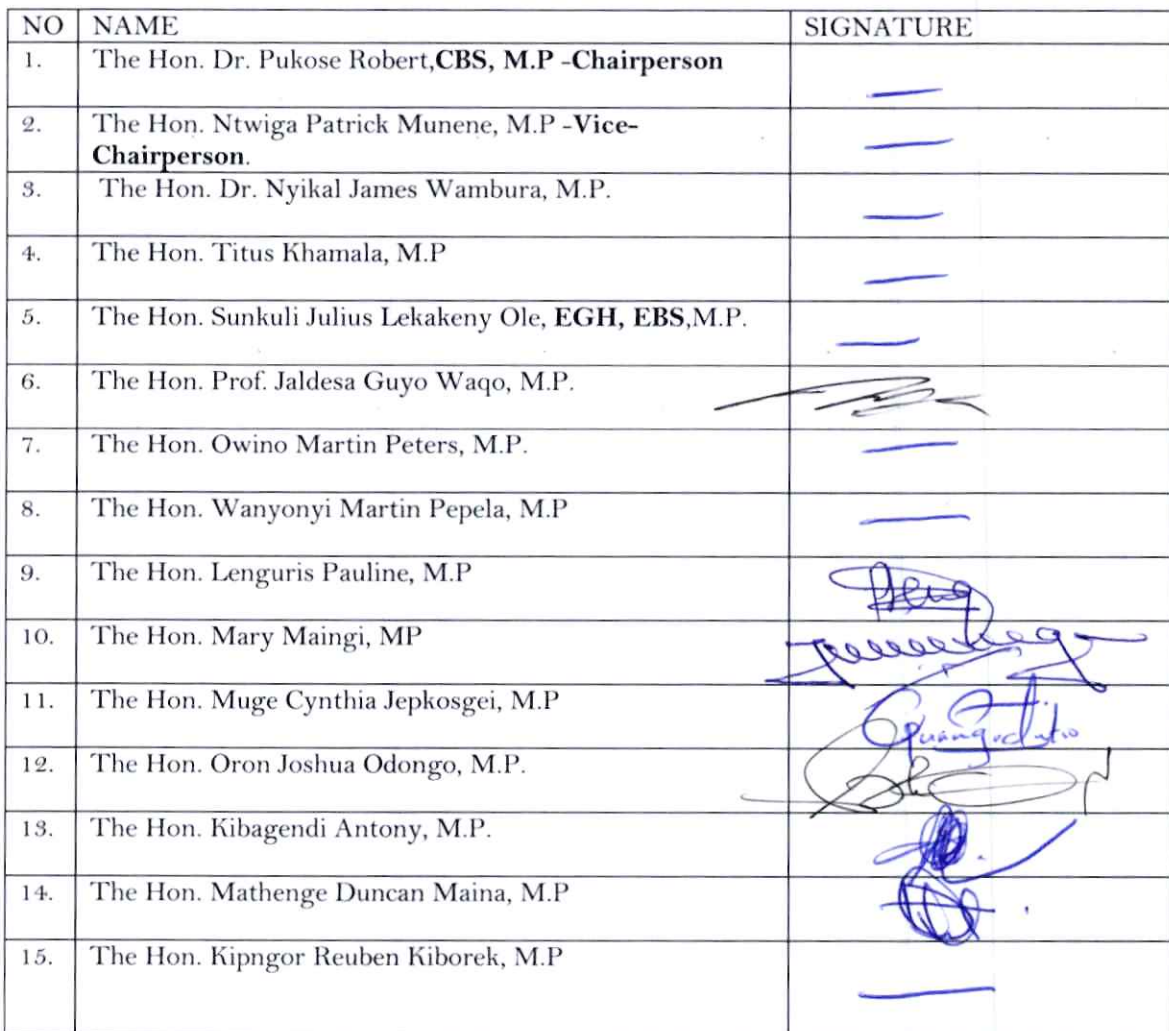 NO NAME SIGNATURE
1. The Hon. Dr. Pukose Robert,CBS, M.P -Chairperson
2. The Hon. Ntwiga Patrick Munene, M.P -Vice-
Chairperson.
3. The Hon. Dr. Nyikal James Wambura, M.P.
4. The Hon. Titus Khamala, M.P
5. The Hon. Sunkuli Julius Lekakeny Ole, EGH, EBS,M.P.
6. The Hon. Prof. Jaldesa Guyo Waqo, M.P.
7. The Hon. Owino Martin Peters, M.P.
8. The Hon. Wanyonyi Martin Pepela, M.P
9. The Hon. Lenguris Pauline, M.P
10. The Hon. Mary Maingi, MP
11. The Hon. Muge Cynthia Jepkosgei, M.P
12. The Hon. Oron Joshua Odongo, M.P.
13. The Hon. Kibagendi Antony, M.P.
14. The Hon. Mathenge Duncan Maina, M.P
15. The Hon. Kipngor Reuben Kiborek, M.P